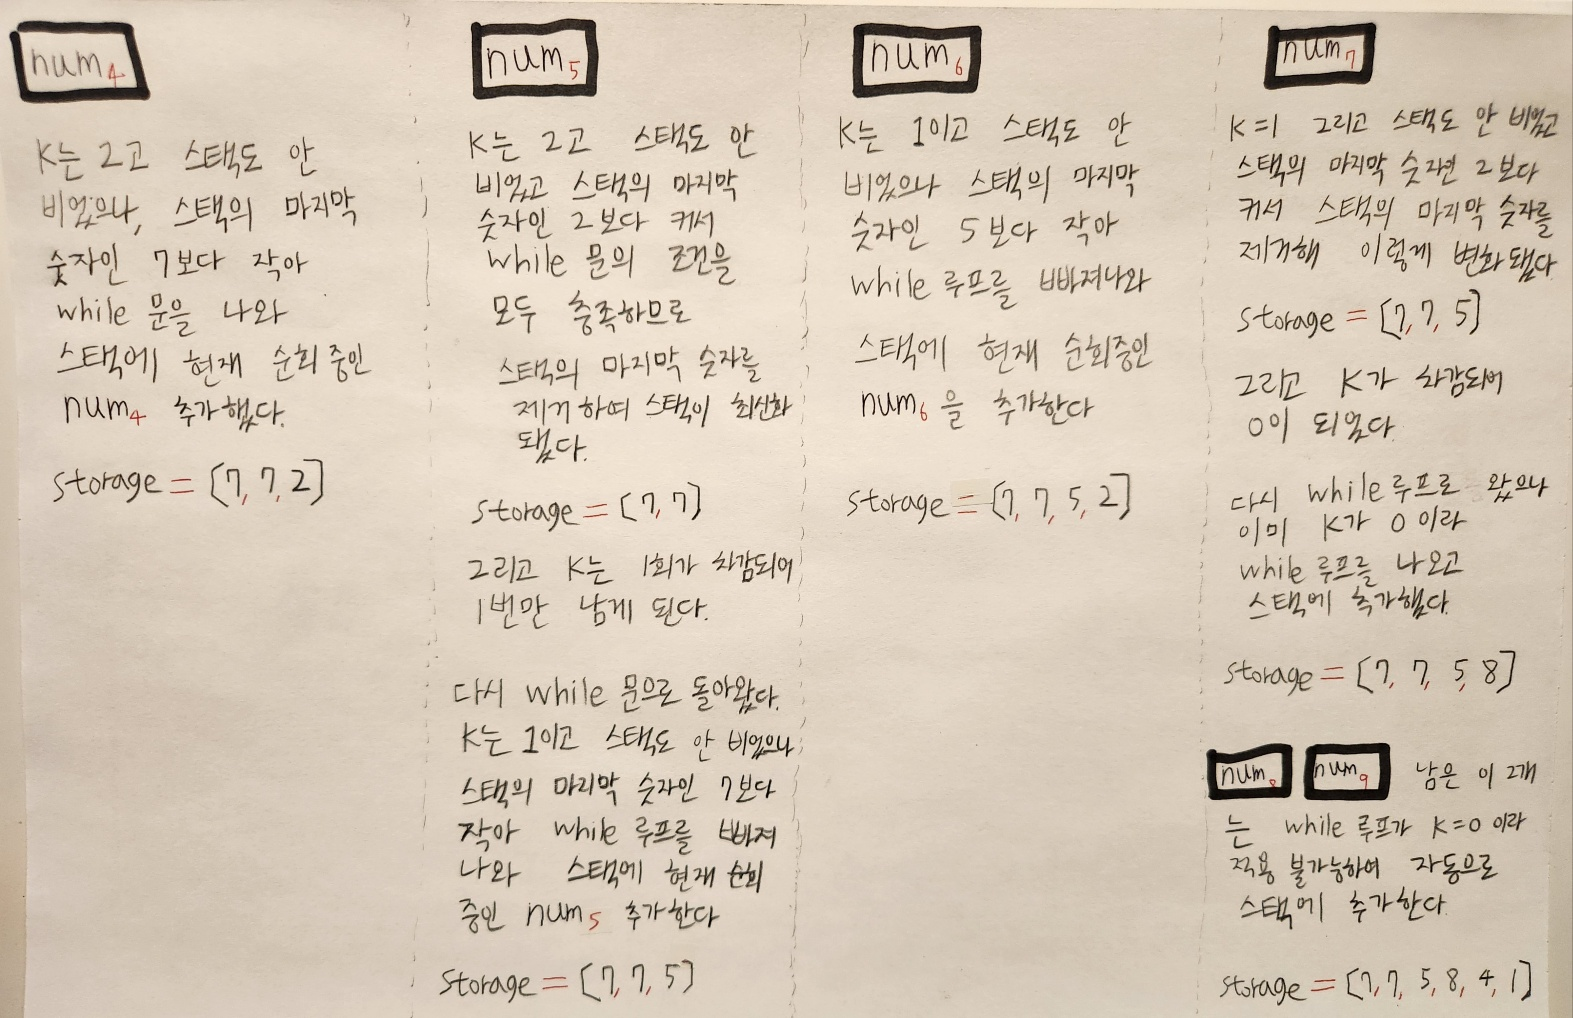 num4
K는 2고 스택도 안
비었으나, 스택의 마지막
숫자인 7보다 작아
while 문을 나와
스택에 현재 순회중인
num4 추가했다.
storage = [7, 7, 2]
num5
K는 2고 스택도 안
비었고 스택의 마지막
숫자인 2보다 커서
while 문의 조건을
모두 충족하므로
스택의 마지막 숫자를
제거하여 스택이 최신화
됐다.
storage = [7, 7]
그리고 K는 1회가 차감되어
1번만 남게 된다.
다시 while 문으로 돌아왔다.
K는 1이고 스택도 안 비었으나
스택의 마지막 숫자인 7보다
작아 while 루프를 빠져
나와 스택에 현재 순회
중인 num5 추가한다
storage = [7, 7, 5]
num6
K는 1이고 스택도 안
비었으나 스택의 마지막
숫자인 5보다 작아
while 루프를 빠져나와
스택에 현재 순회중인
num6을 추가한다
storage = [7, 7, 5, 2]
num7
K=1 그리고 스택도 안 비었고
스택의 마지막 숫자인 2보다
커서 스택의 마지막 숫자를
제거해 이렇게 변화됐다
storage = [7, 7, 5]
그리고 K가 차감되어
0이 되었다.
다시 while 루프로 왔으나
이미 K가 0이라
while 루프를 나오고
스택에 추가했다.
storage = [7, 7, 5, 8]
num8 num9 남은 이 2개
는 while 루프가 K=0 이라
적용 불가능하여 자동으로
스택에 추가한다
storage = [7, 7, 5, 8, 4, 1]